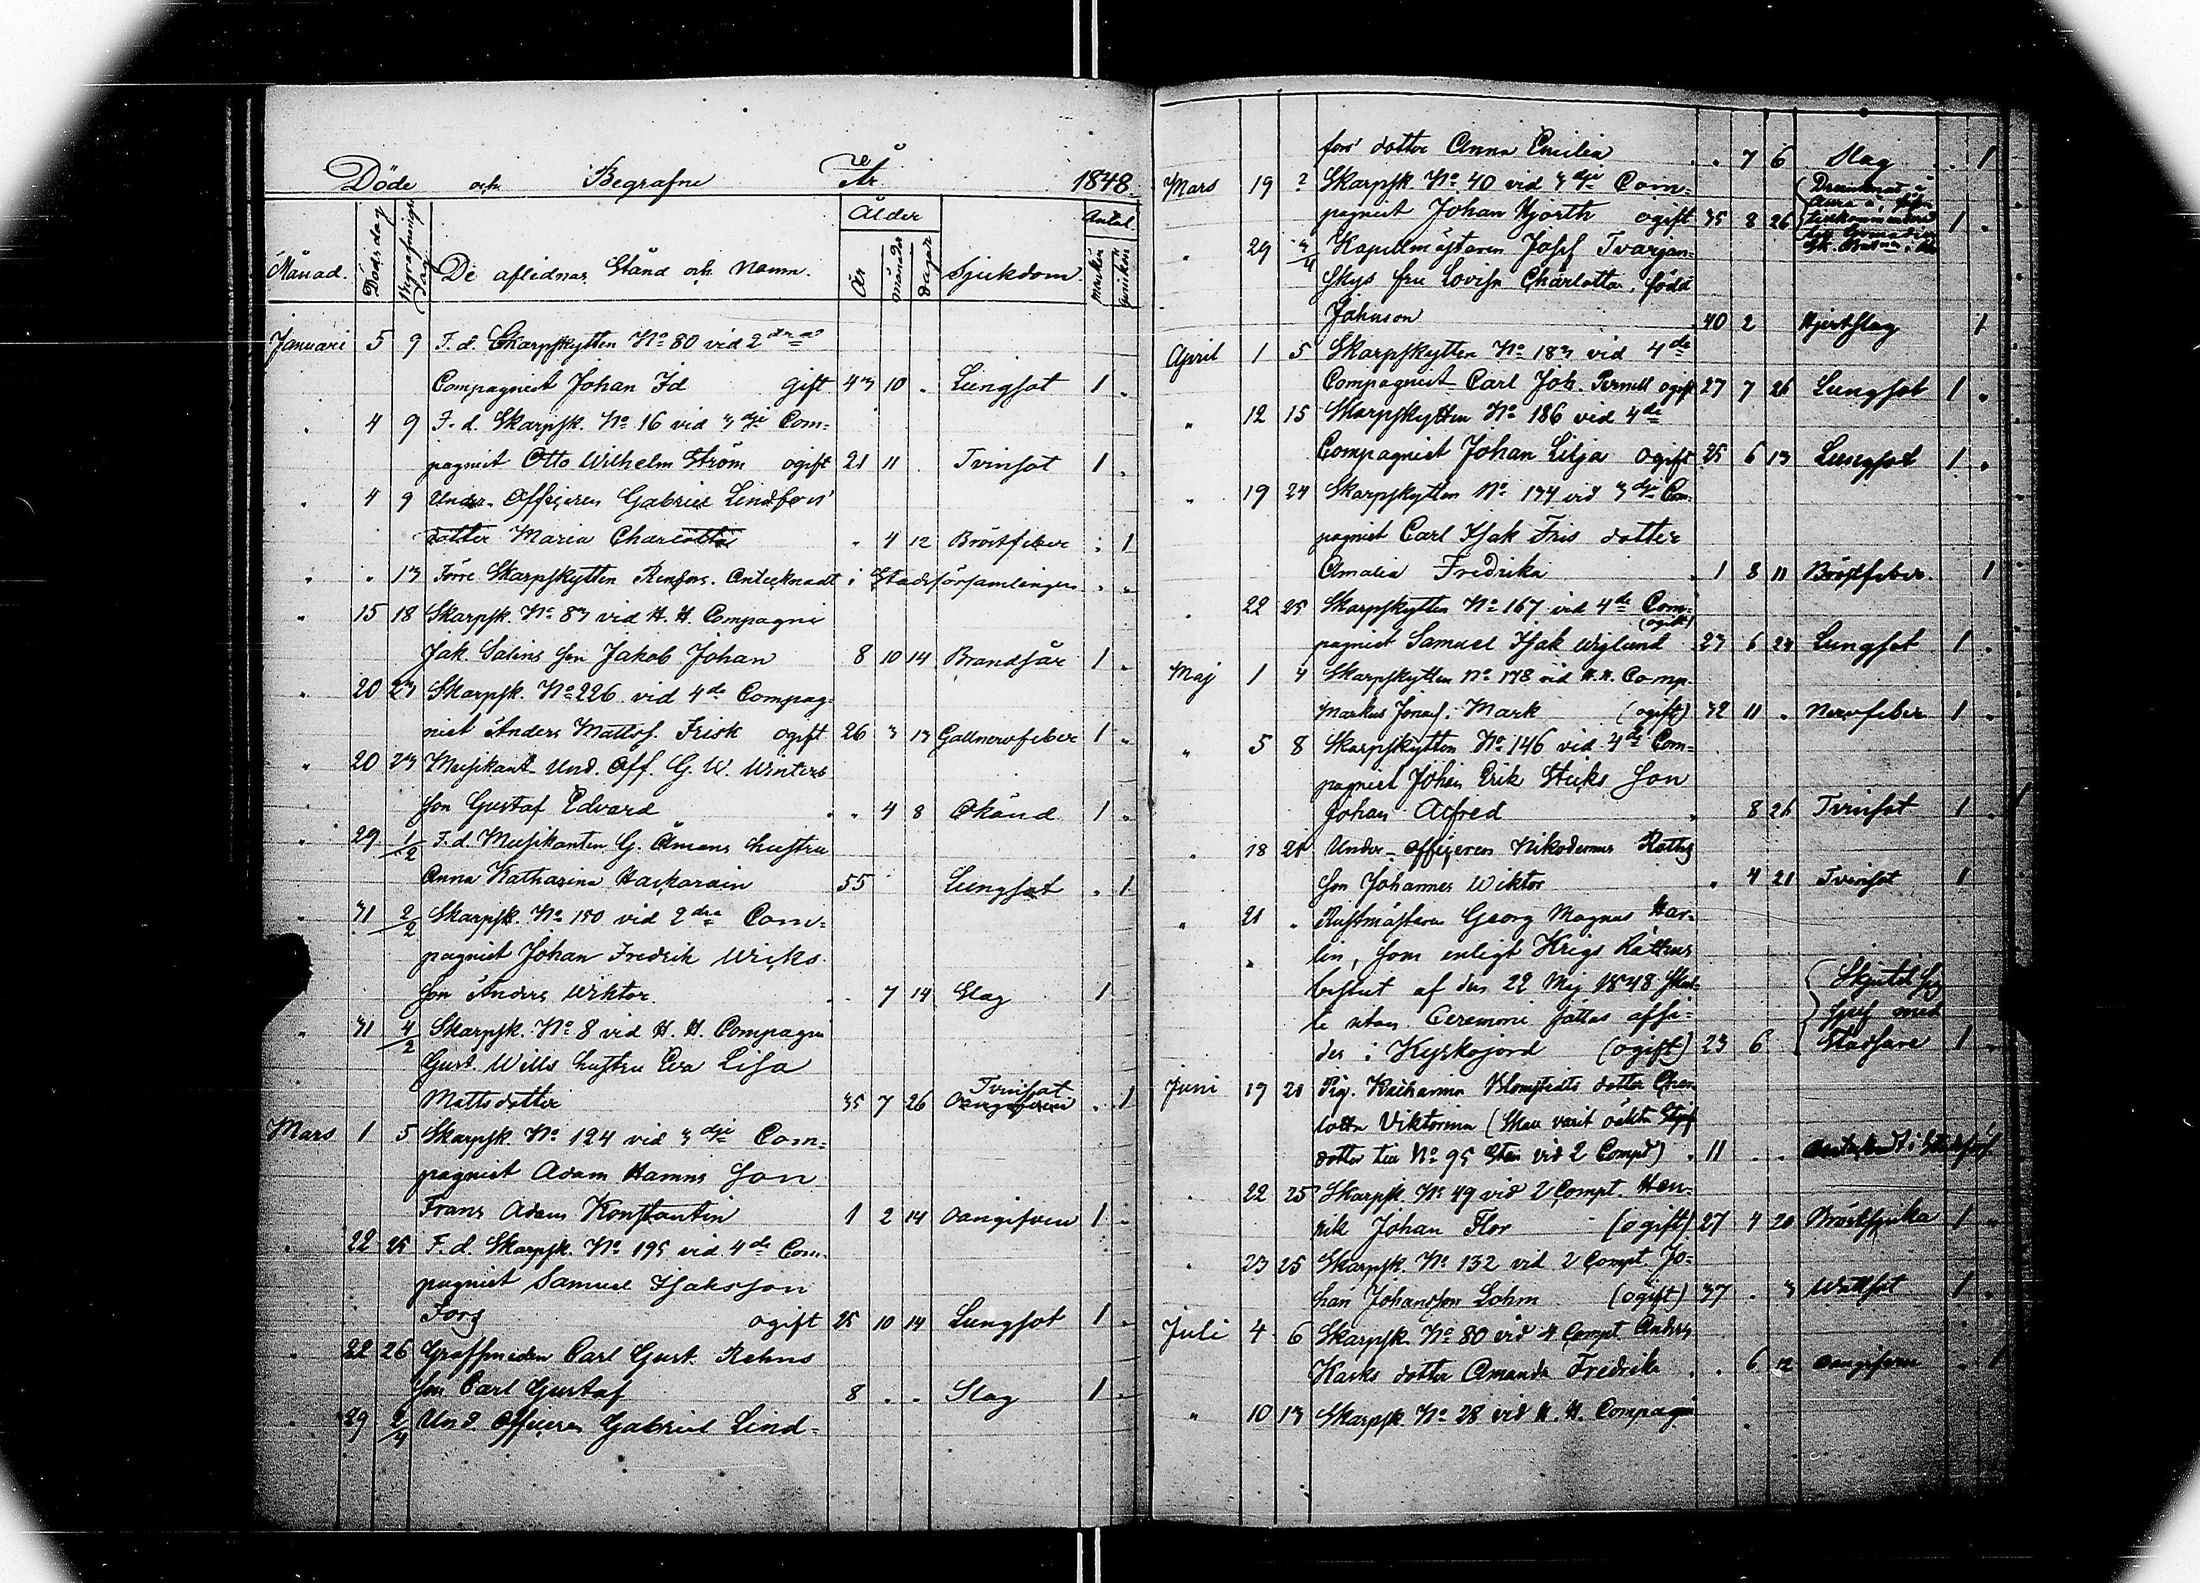 Döde och Begrafne År 1848.
Månad. Dödsdag Begrafningsdag De aflidnas Stånd och Namn. Ålder År månader dagar Sjukdom. Antal mankön qvinkön
Januari 5 9 F. d. Skarpskytten No 80 vid 2dra
Compagniet Johan Id gift 43 10 . Lungsot 1 .
. 4 9 F. d. Skarpsk. No 16 vid 3dje Com-
pagniet Otto Wilhelm Ström ogift 21 11 . Tvinsot 1 .
. 4 9 Under-Officeren Gabriel Lindfors'
dotter Maria Charlotta . 4 12 Bröstfeber . 1
. . 13 Förre Skarpskytten Renfors. Antecknadt i Stadsförsamlingen . .
. 15 18 Skarpsk. No 83 vid H. H. Compagni
Jak. Salins son Jakob Johan 8 10 14 Brandsår 1 .
. 20 23 Skarpsk. No 226 vid 4de Compag-
niet Anders Mattss. Frisk ogift 26 3 13 Gallnervfeber 1 .
. 20 23 Musikant Und. Off. G. W. Winters
son Gustaf Edvard . 4 8 Okänd 1 .
. 29 1/2 F. d. Musikanten G. Åmans hustru
Anna Katharina 55 Lungsot . 1
. 31 2/2 Skarpsk. No 150 vid 2dra Com-
pagniet Johan Fredrik Wicks
son Anders Wiktor . 7 14 Slag 1
. 31 4/2 Skarpsk. No 8 vid H. H. Compagni
Gust. Wells hustru Eva Lisa
Mattsdotter 35 7 26 Tvinsot Oangifven . 1
Mars 1 5 Skarpsk. No 124 vid 3dje Com-
pagniet Adam Hamns son
Frans Adam Konstantin 1 2 14 Oangifven 1 .
. 22 25 F. d. Skarpsk. No 195 vid 4de Com-
pagniet Samuel Isaksson
Forg ogift 25 10 14 Lungsot 1 .
. 22 26 Grofsmeden Carl Gust. Rehns
son Carl Gustaf 8 . . Slag 1 .
. 29 2/4 Und. Officeren Gabriel Lind-
fors' dotter Anna Emilia . 7 6 Slag . 1
Mars 19 ? Skarpsk. No 40 vid 3dje Com-
pagniet Johan Hjorth ogift 35 8 26 Drunknat i Aura å 1 .
. 29 3/4 Kapellmästaren Josef Tvarjan-
skys fru Lovisa Charlotta, född
Johnson 40 2 Hjertslag 1
April 1 5 Skarpskytten No 183 vid 4de
Compagniet Carl Joh. Pernell ogift 27 7 26 Lungsot 1 .
. 12 15 Skarpskytten No 186 vid 4de
Compagniet Johan Lilja ogift 25 6 13 Lungsot 1 .
. 19 24 Skarpskytten No 134 vid 3dje Com-
pagniet Carl Isak Fris dotter
Amalia Fredrika . 1 8 11 Bröstfeber 1
. 22 25 Skarpskytten No 167 vid 4de Com-
pagniet Samuel Isak Wiglund (ogift) 23 6 23 Lungsot 1 .
Maj 1 4 Skarpskytten No 178 vid H. H. Comp.
Markus Jonas. Mark (ogift) 32 11 . Nervfeber 1 .
. 5 8 Skarpskytten No 146 vid 4de Com-
pagniet Johan Erik Stecks son
Johan Alfred . 8 26 Tvinsot 1 .
. 18 21 Under-Officeren Nikodemus Roths
son Johannes Wiktor . 4 21 Tvinsot 1
. 21 . Rustmästaren Georg Magnus Har-
lin, som enligt Krigs Rättens
beslut af den 22 Maj 1848 skul-
le utan Ceremoni sättas afsi-
des i Kyrkojord (ogift) 23 6 Skjutit sig sjelf med Stadsare 1 .
Juni 17 21 Pig. Katharina Blomstedts dotter Char-
lotta Viktorina (skall varit oäkta
dotter till No 95 Sten vid 2 Compt) . 11 . . Antecknadt i Stadsförs.
. 22 25 Skarpsk. No 49 vid 2 Compt. Hen-
rik Johan Flor (ogift) 27 4 20 Bröstsjuka 1 .
. 23 25 Skarpsk. No 132 vid 2 Compt. Jo-
han Johansson Lohm (ogift) 37 . 3 Wattsot 1 .
Juli 4 6 Skarpsk. No 80 vid 4 Compt. Anders
Kasks dotter Amanda Fredrika . . 6 12 Oangifven . 1
. 10 13 Skarpsk. No 28 vid H. H. Compagni